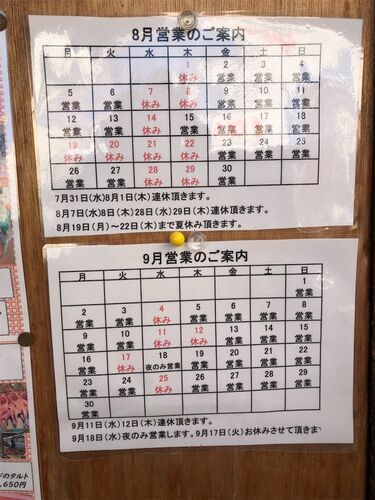 8月営業のご案内
月 火 水 木 金 土 日
1 2 3 4
休み 営業 営業 営業
5 6 7 8 9 10 11
営業 営業 休み 休み 営業 営業 営業
12 13 14 15 16 17 18
営業 営業 休み 営業 営業 営業 営業
19 20 21 22 23 24 25
休み 休み 休み 休み 営業 営業 営業
26 27 28 29 30
営業 営業 休み 休み 営業
7月31日(水)8月1日(木)連休頂きます。
8月7日(水)8日(木)28日(水)29日(木)連休頂きます。
8月19日(月)～22日(木)まで夏休み頂きます。
9月営業のご案内
月 火 水 木 金 土 日
1
営業
2 3 4 5 6 7 8
営業 営業 休み 営業 営業 営業 営業
9 10 11 12 13 14 15
営業 営業 休み 休み 営業 営業 営業
16 17 18 19 20 21 22
営業 休み 夜のみ営業 営業 営業 営業 営業
23 24 25 26 27 28 29
営業 営業 休み 営業 営業 営業 営業
30
営業
9月11日(水)12日(木)連休頂きます。
9月18日(水)夜のみ営業します。9月17日(火)お休みさせて頂きま
ドのタルト
,650円